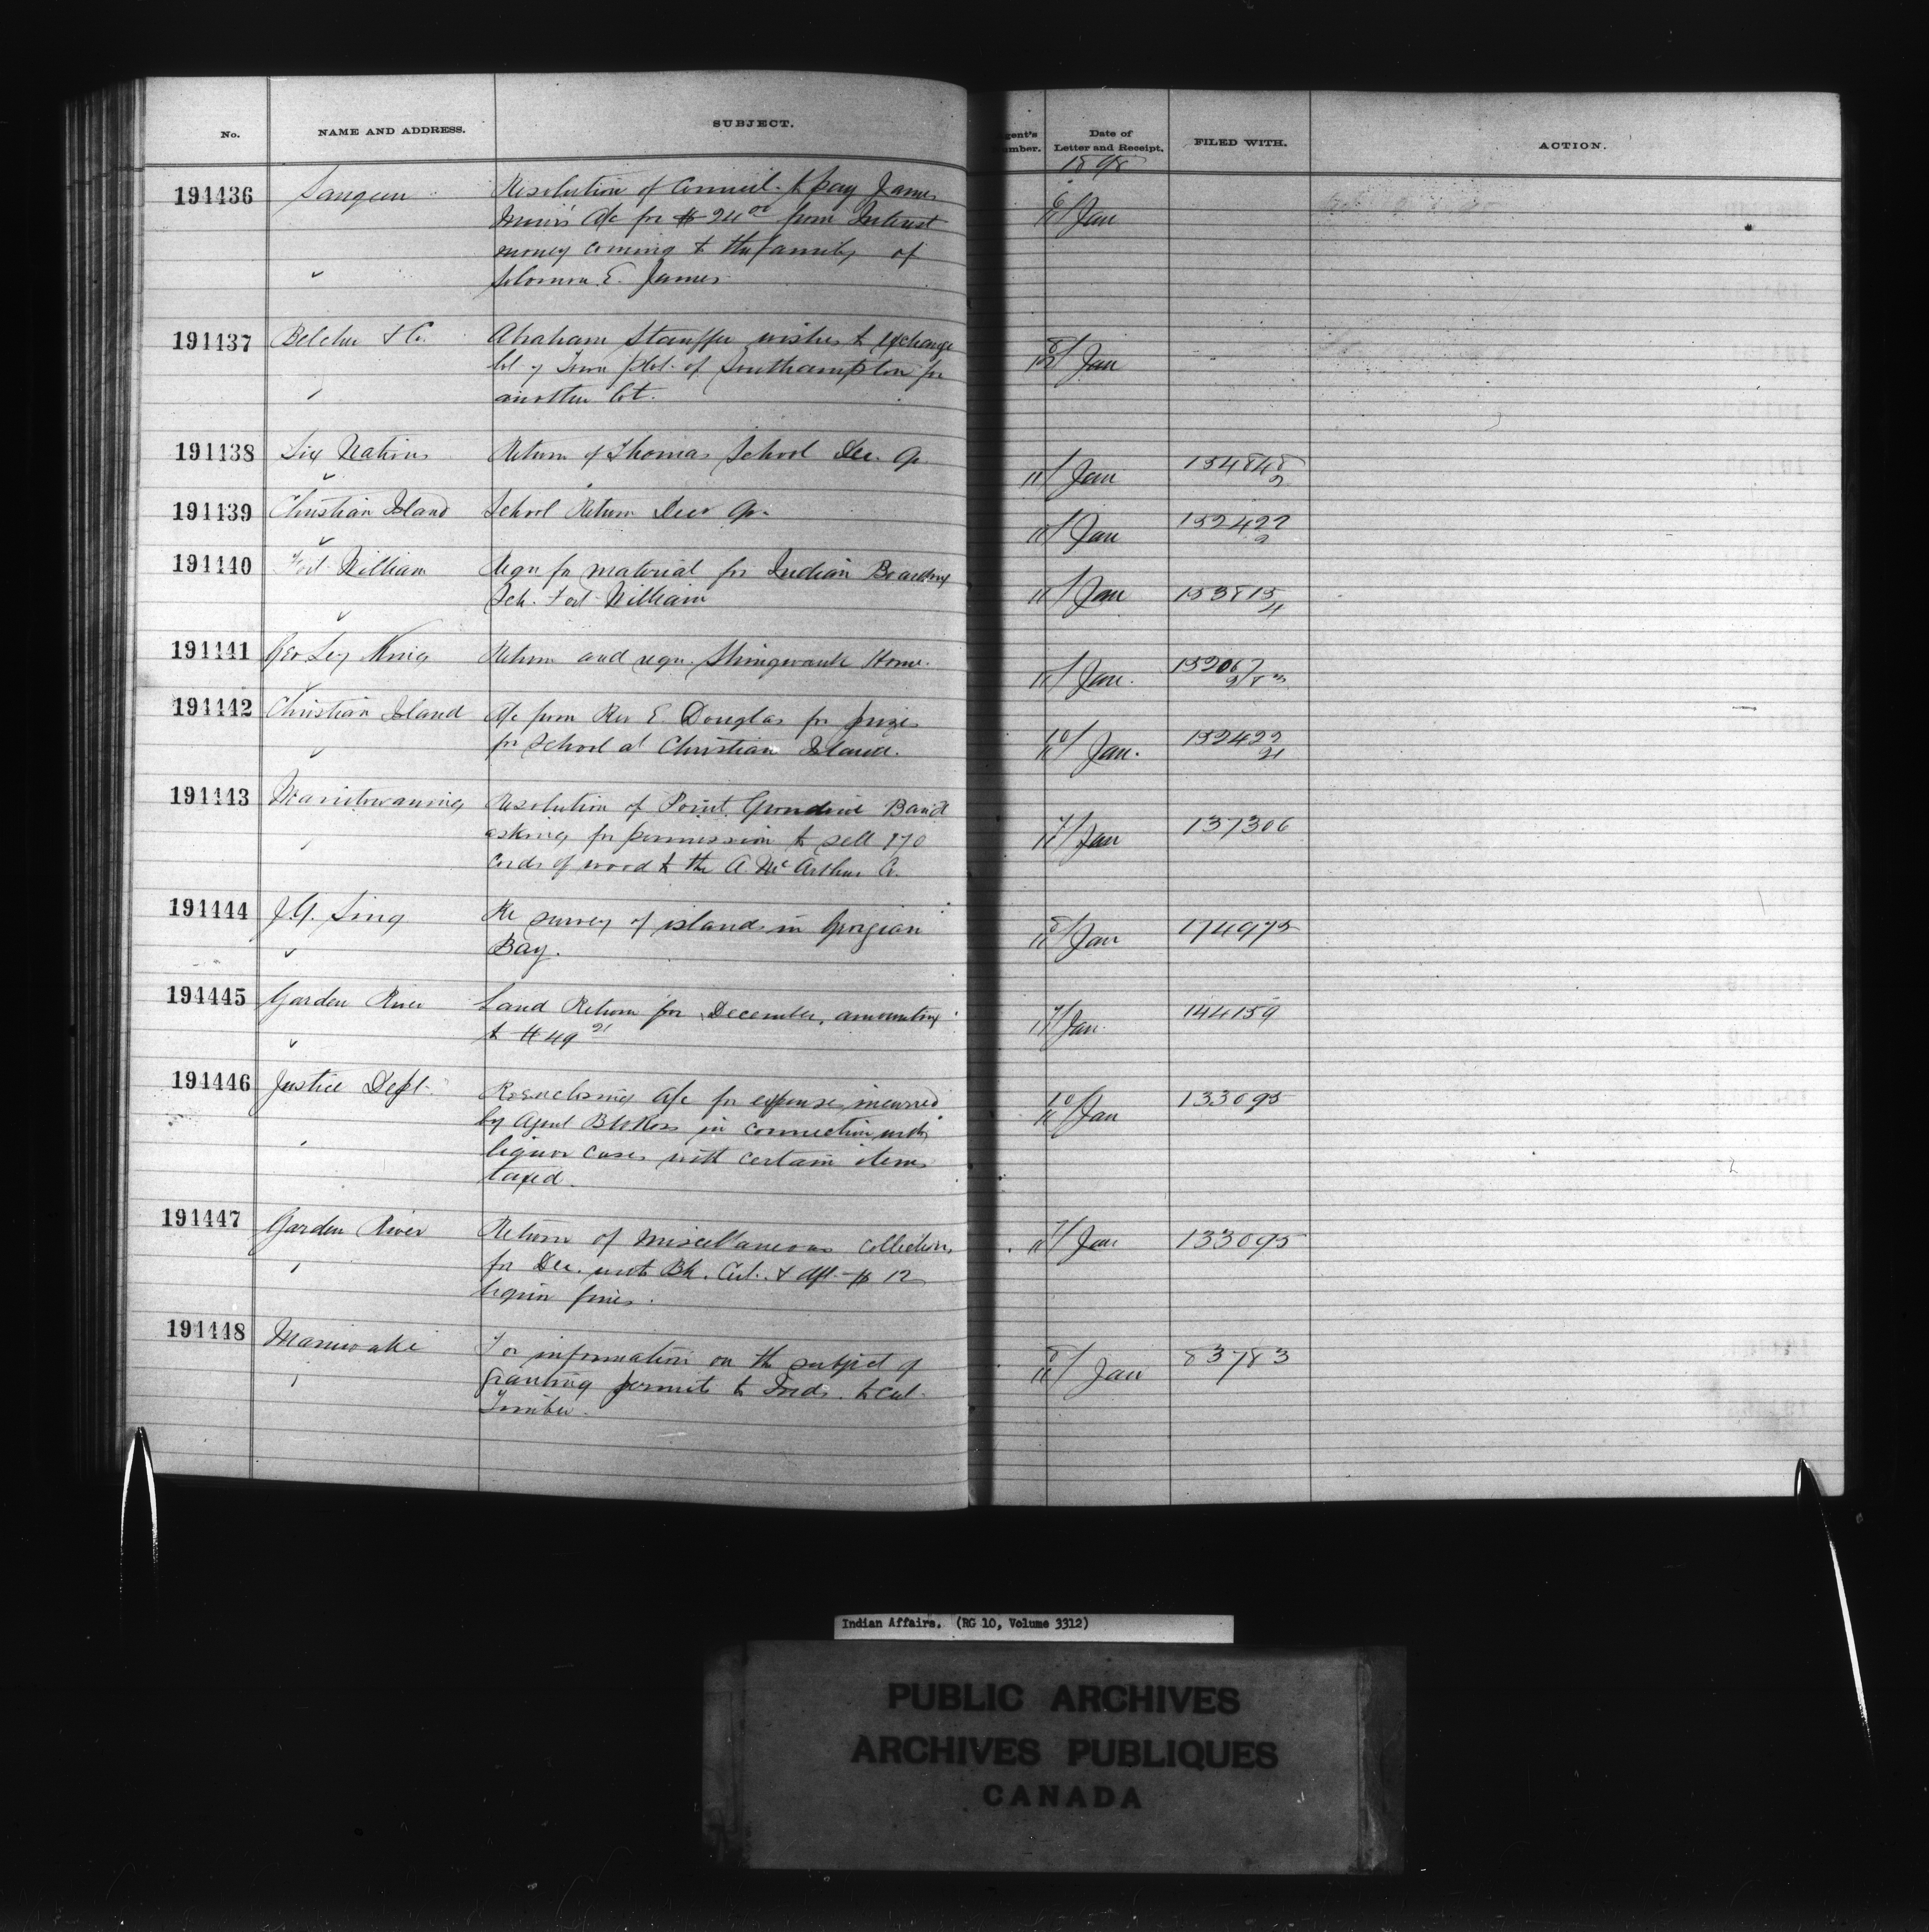 No. NAME AND ADDRESS. SUBJECT. Agent's Number. Date of Letter and Receipt. FILED WITH. ACTION.
1898
191436 Saugeen Resolution of Council to pay James 6/11 Jan
Muir's a/c for $24 00 from Interest
money coming to the family of
Solomon E. James
191437 Belcher & Co. Abraham Stauffer wishes to exchange 8/12 Jan
lot 7 Town plot of Southampton for
another lot.
191438 Six Nations Return of Thomas School Dec. Qr. /11 Jan 154848/2
191439 Christian Island School Return Decr Qr. /11 Jan 152422/2
191440 Fort William Reqn for material for Indian Boarding /11 Jan 153815/4
Sch. Fort William
191441 Geo Ley King Return and reqn. Shingwauk Home. /11 Jan. 152067
191442 Christian Island a/c from Rev E. Douglas for prizes 10/11 Jan. 152422/21
for School at Christian Island.
191443 Manitowaning Resolution of Point Grondine Band 7/11 Jan 137306
asking for permission to sell 170
cords of wood to the A. McArthur Co.
191444 J.G. Sing Re survey of islands in Georgian 8/11 Jan 174975
Bay.
191445 Garden River Land Return for December, amounting 7/11 Jan. 144159
to $49 21
191446 Justice Dept. Re enclosing a/c for expenses incurred 10/11 Jan 133095
by Agent B W Ross in connection with
liquor cases with certain items
taxed.
191447 Garden River Return of Miscellaneous Collections 7/11 Jan 133095
for Dec. with Bk. Cert. & dft. $12
liquor fines.
191448 Maniwaki For information on the subject of 8/11 Jan 83783
granting permits to Inds. to cut
Timber.
Indian Affairs. (RG 10, Volume 3312)
PUBLIC ARCHIVES
ARCHIVES PUBLIQUES
CANADA